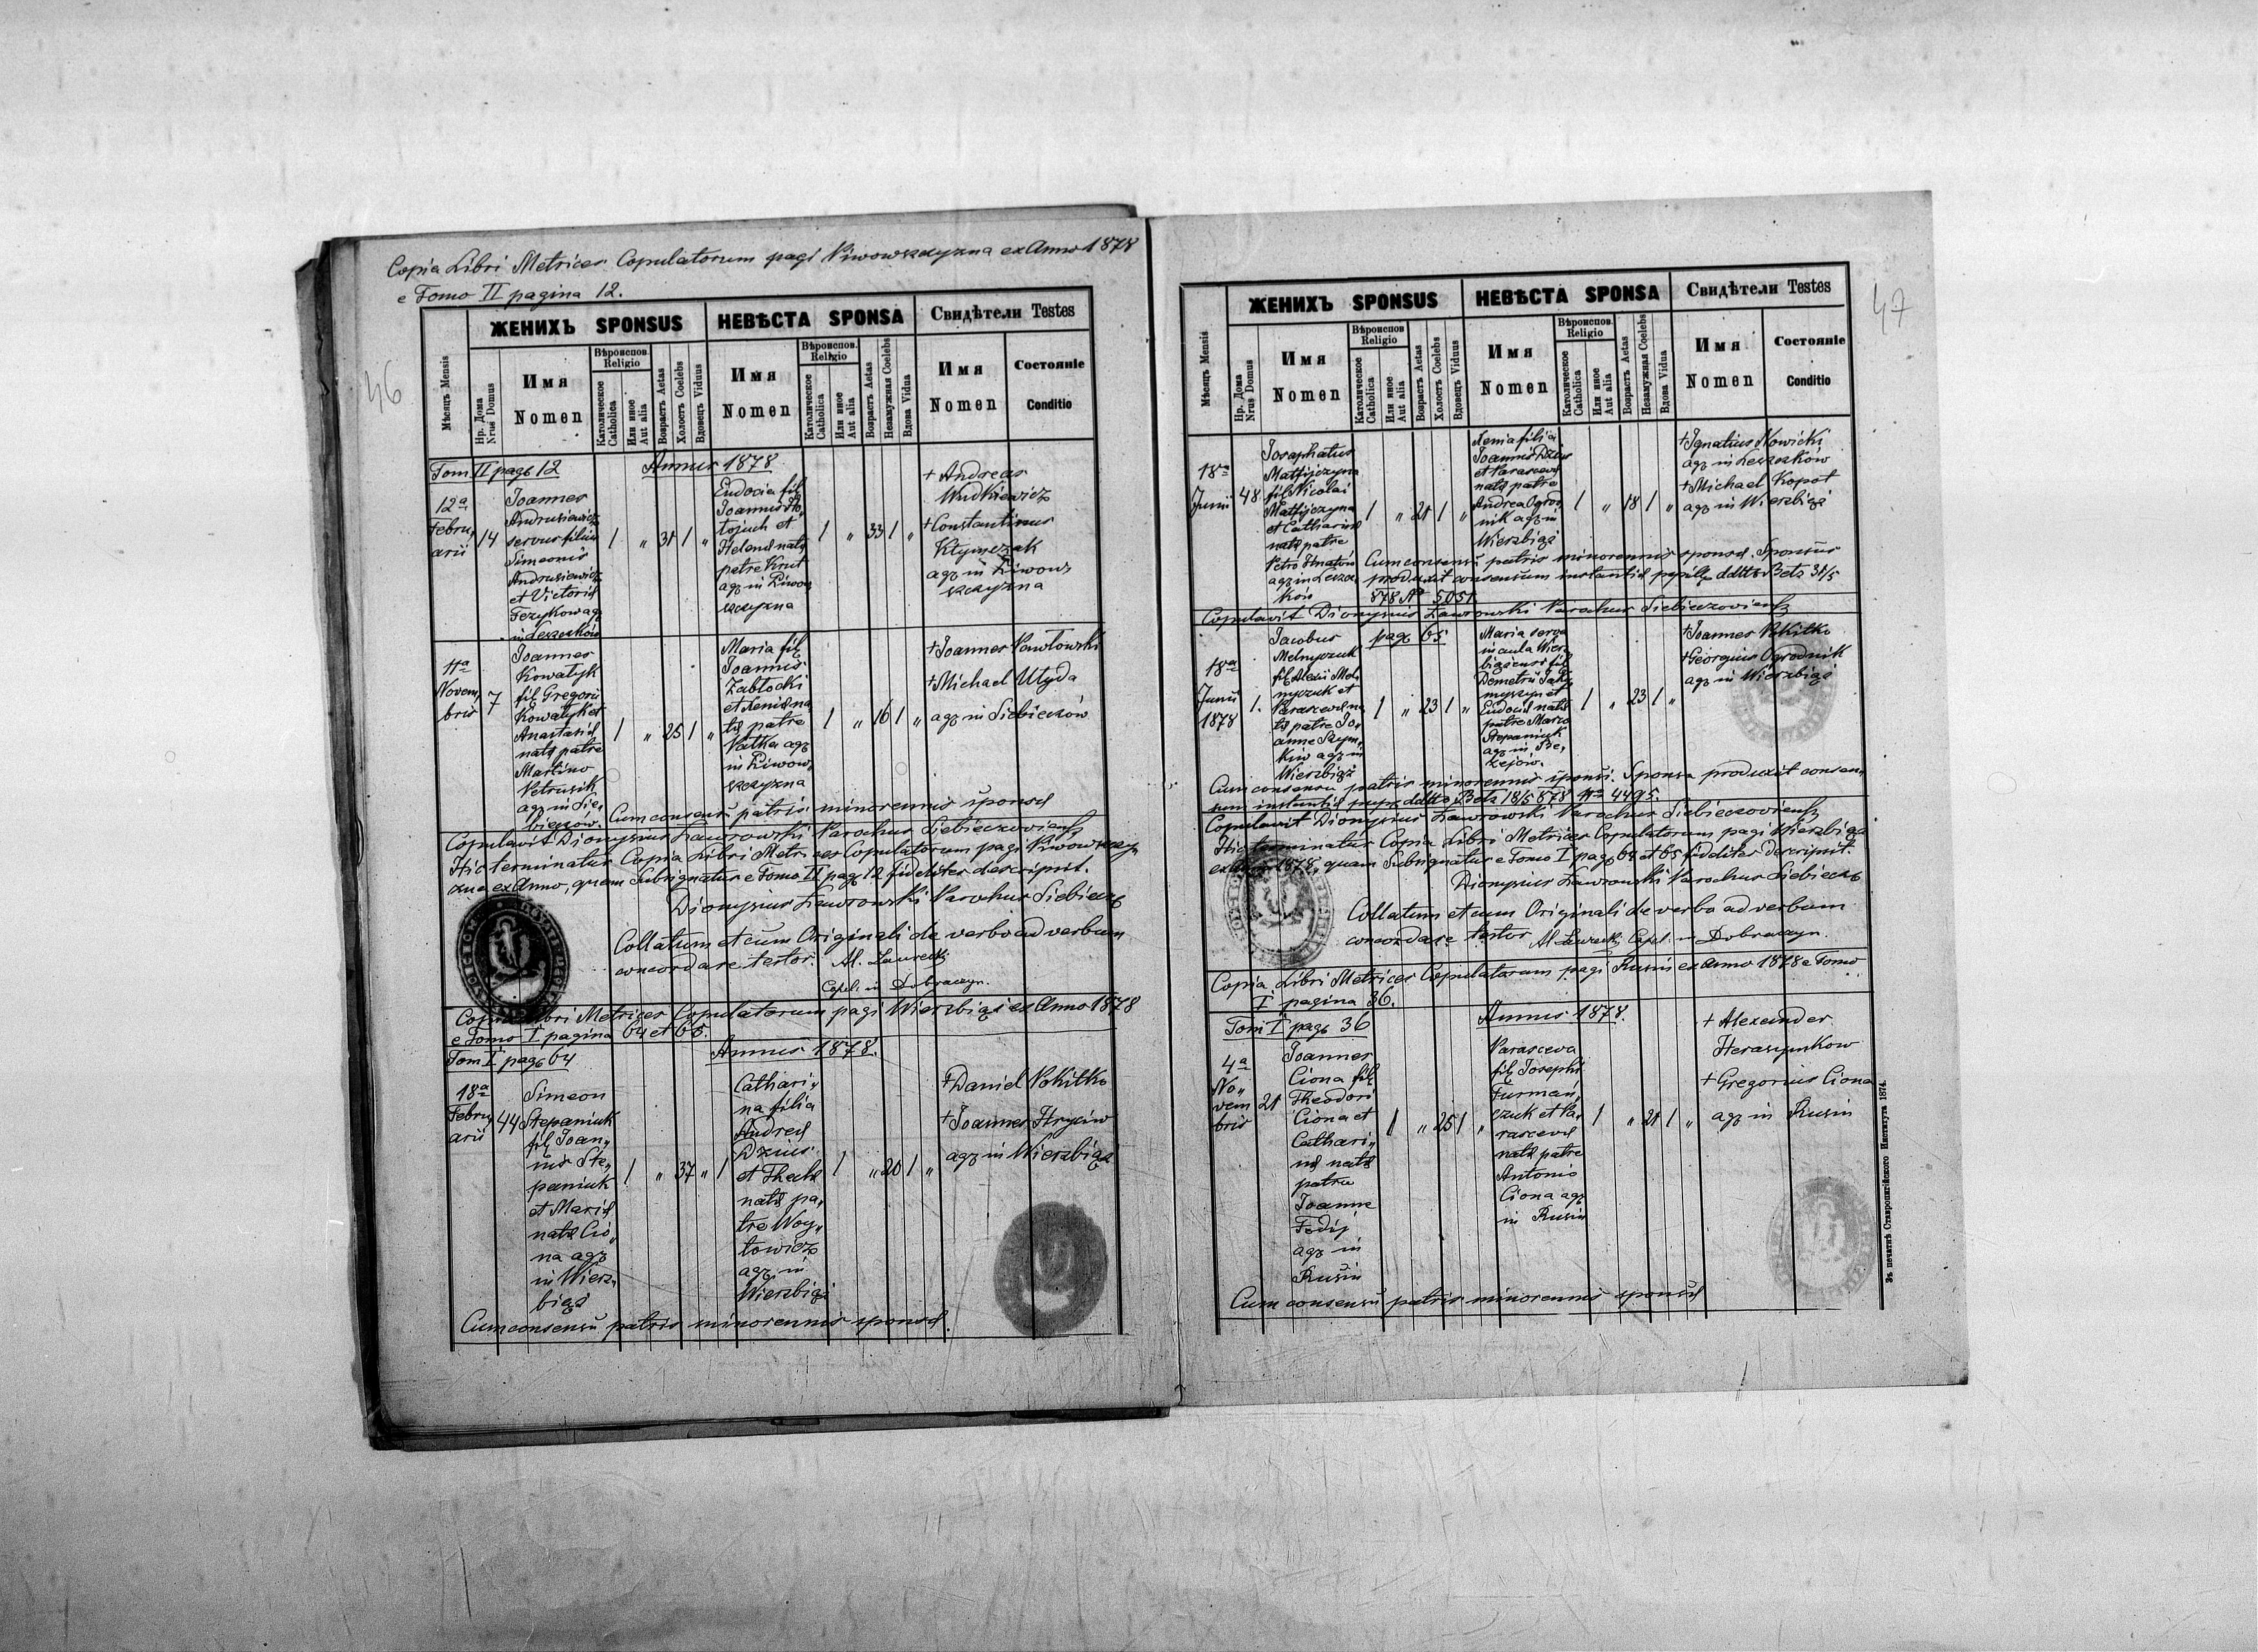 Copia Libri Metrices Copulatorum pagi Piwowszczyzna ex Anno 1878
e Tomo II pagina 12.
46
ЖЕНИХЪ SPONSUS
НЕВѢСТА SPONSA
Свидѣтели Testes
Мѣсяцъ Mensis
Нр. Дома
Nrus Domus
Имя
Nomen
Вѣроиспов.
Religio
Католическое
Catholica
Или иное
Aut alia
Возрастъ Aetas
Холостъ Coelebs
Вдовецъ Viduus
Имя
Nomen
Вѣроиспов.
Religio
Католическое
Catholica
Или иное
Aut alia
Возрастъ Aetas
Незамужная Coelebs
Вдова Vidua
Имя
Nomen
Состояніе
Conditio
Tom II pag 12
Annus 1878
12a
Febru„
arii
14
Joannes
Andrusiewicz
servus filius
Simeonis
Andrusiewicz
et Victoriæ
Fezykow ag
in Leszczków
1 „ 31 1 „
Eudocia fil
Joannis
tojuch et
Helenæ natæ
patre Krut
agr in Piwow
szczyzna
1 „ 33 1 „
+ Andreas
Wudkiewicz
+ Constantinus
Klymczak
agr in Piwow„
szczyzna
11a
Novem„
bris
7
Joannes
Kowalyk
fil Gregorii
Kowalyk et
Anastasiæ
natæ patre
Martino
Petrusik
agr in Sie„
bieczów.
1 „ 25 1 „
Maria fil
Joannis
Zabłocki
et Xeniæ na
tæ patre
Patka agr
in Piwow„
szczyzna
1 „ 16 1 „
+ Joannes Pawłowski
+ Michael Ułyda
agr in Siebieczów
Cum consensu patris minorennis sponsæ
Copulavit Dionysius Ławrowski Parochus Siebieczoviens
Hic terminatur Copia Libri Metrices Copulatorum pagi Piwowszczy
zna ex Anno, quam Subsignatus e Tomo II pag 12 fideliter descripsit.
Dionysius Ławrowski Parochus Siebiecz
Collatum et cum Originali de verbo ad verbum
concordare testor. Al. Ławrecki
Capel. in Dobraczyn.
Copia Libri Metrices Copulatorum pagi Wierzbiąż ex Anno 1878
e Tomo I pagina 64 et 65.
Tom I pag 64
Annus 1878.
18a
Febru„
arii
44
Simeon
Stepaniuk
fil Joan„
nis Ste„
paniuk
et Mariæ
natæ Cio„
na agr
in Wierz„
biąż
1 „ 37 „ 1
Cathari„
na filia
Andreæ
Dzius
et Theclæ
natæ pa„
tre Woy„
towicz
agr in
Wierzbiąż
1 „ 20 1 „
+ Daniel Pokitko
+ Joannes Hryciw
agr in Wierzbiąż
Cum consensu patris minorennis sponsæ.
47
ЖЕНИХЪ SPONSUS
НЕВѢСТА SPONSA
Свидѣтели Testes
Мѣсяцъ Mensis
Нр. Дома
Nrus Domus
Имя
Nomen
Вѣроиспов.
Religio
Католическое
Catholica
Или иное
Aut alia
Возрастъ Aetas
Холостъ Coelebs
Вдовецъ Viduus
Имя
Nomen
Вѣроиспов.
Religio
Католическое
Catholica
Или иное
Aut alia
Возрастъ Aetas
Незамужная Coelebs
Вдова Vidua
Имя
Nomen
Состояніе
Conditio
18a
Junii
48
Josaphatus
Matfijczyna
fil Nicolai
Matfijczyna
et Catharinæ
natæ patre
Petro Hnatów
agr in Leszcz
ków
1 „ 21 1 „
Xenia filia
Joannis Dzius
et Parascevæ
natæ patre
Andrea Ogrod
nik agr in
Wierzbiąż
1 „ 18 1 „
+ Ignatius Nowicki
agr in Leszczków
+ Michael Kopot
agr in Wierzbiąż
Cum consensu patris minorennis sponsæ. Sponsus
produxit consensum instantiæ pupill ddtto Betz 31/5
878 No 5051.
Copulavit Dionysius Ławrowski Parochus Siebieczoviens
pag 65
18a
Junii
1878
1.
Jacobus
Melnyczuk
fil Alexii Mel
nyczuk et
Parascevæ na
tæ patre Jo„
anne Szym„
kiw agr in
Wierzbiąż
1 „ 23 1 „
Maria serva
in aula Wier
biązensi fil
Demetrii
et
Eudociæ natæ
patre Marco
Stepaniuk
agr in
1 „ 23 1 „
+ Joannes Pokitko
+ Georgius Ogrodnik
agr in Wierzbiąż
Cum consensu patris minorennis sponsi. Sponsa produxit consen„
sum instantiæ pupr ddtto Betz 18/5 878 No 4495.
Copulavit Dionysius Ławrowski Parochus Siebieczoviens
Hic terminatur Copia Libri Metrices Copulatorum pagi Wierzbiąż
ex Anno 1878, quam Subsignatus e Tomo I pag 64 et 65 fideliter descripsit.
Dionysius Ławrowski Parochus Siebiecz
Collatum et cum Originali de verbo ad verbum
concordare testor Al Ławrecki Capel. in Dobraczyn.
Copia Libri Metrices Copulatorum pagi Rusin ex Anno 1878 e Tomo
I pagina 36.
Tom I pag 36
Annus 1878.
4a
No„
vem
bris
21
Joannes
Ciona fil
Theodori
Ciona et
Cathari„
næ natæ
patre
Joanne
Fedij
agr in
Rusin
1 „ 25 1 „
Parasceva
fil Josephi
Furmań„
czuk et Pa„
rascevæ
natæ patre
Antonio
Ciona agr
in Rusin
1 „ 21 1 „
+ Alexander
Herasymkow
+ Gregorius Ciona
agr in Rusin
Cum consensu patris minorennis sponsæ
Зъ печатнѣ Ставропигійского Института 1874.